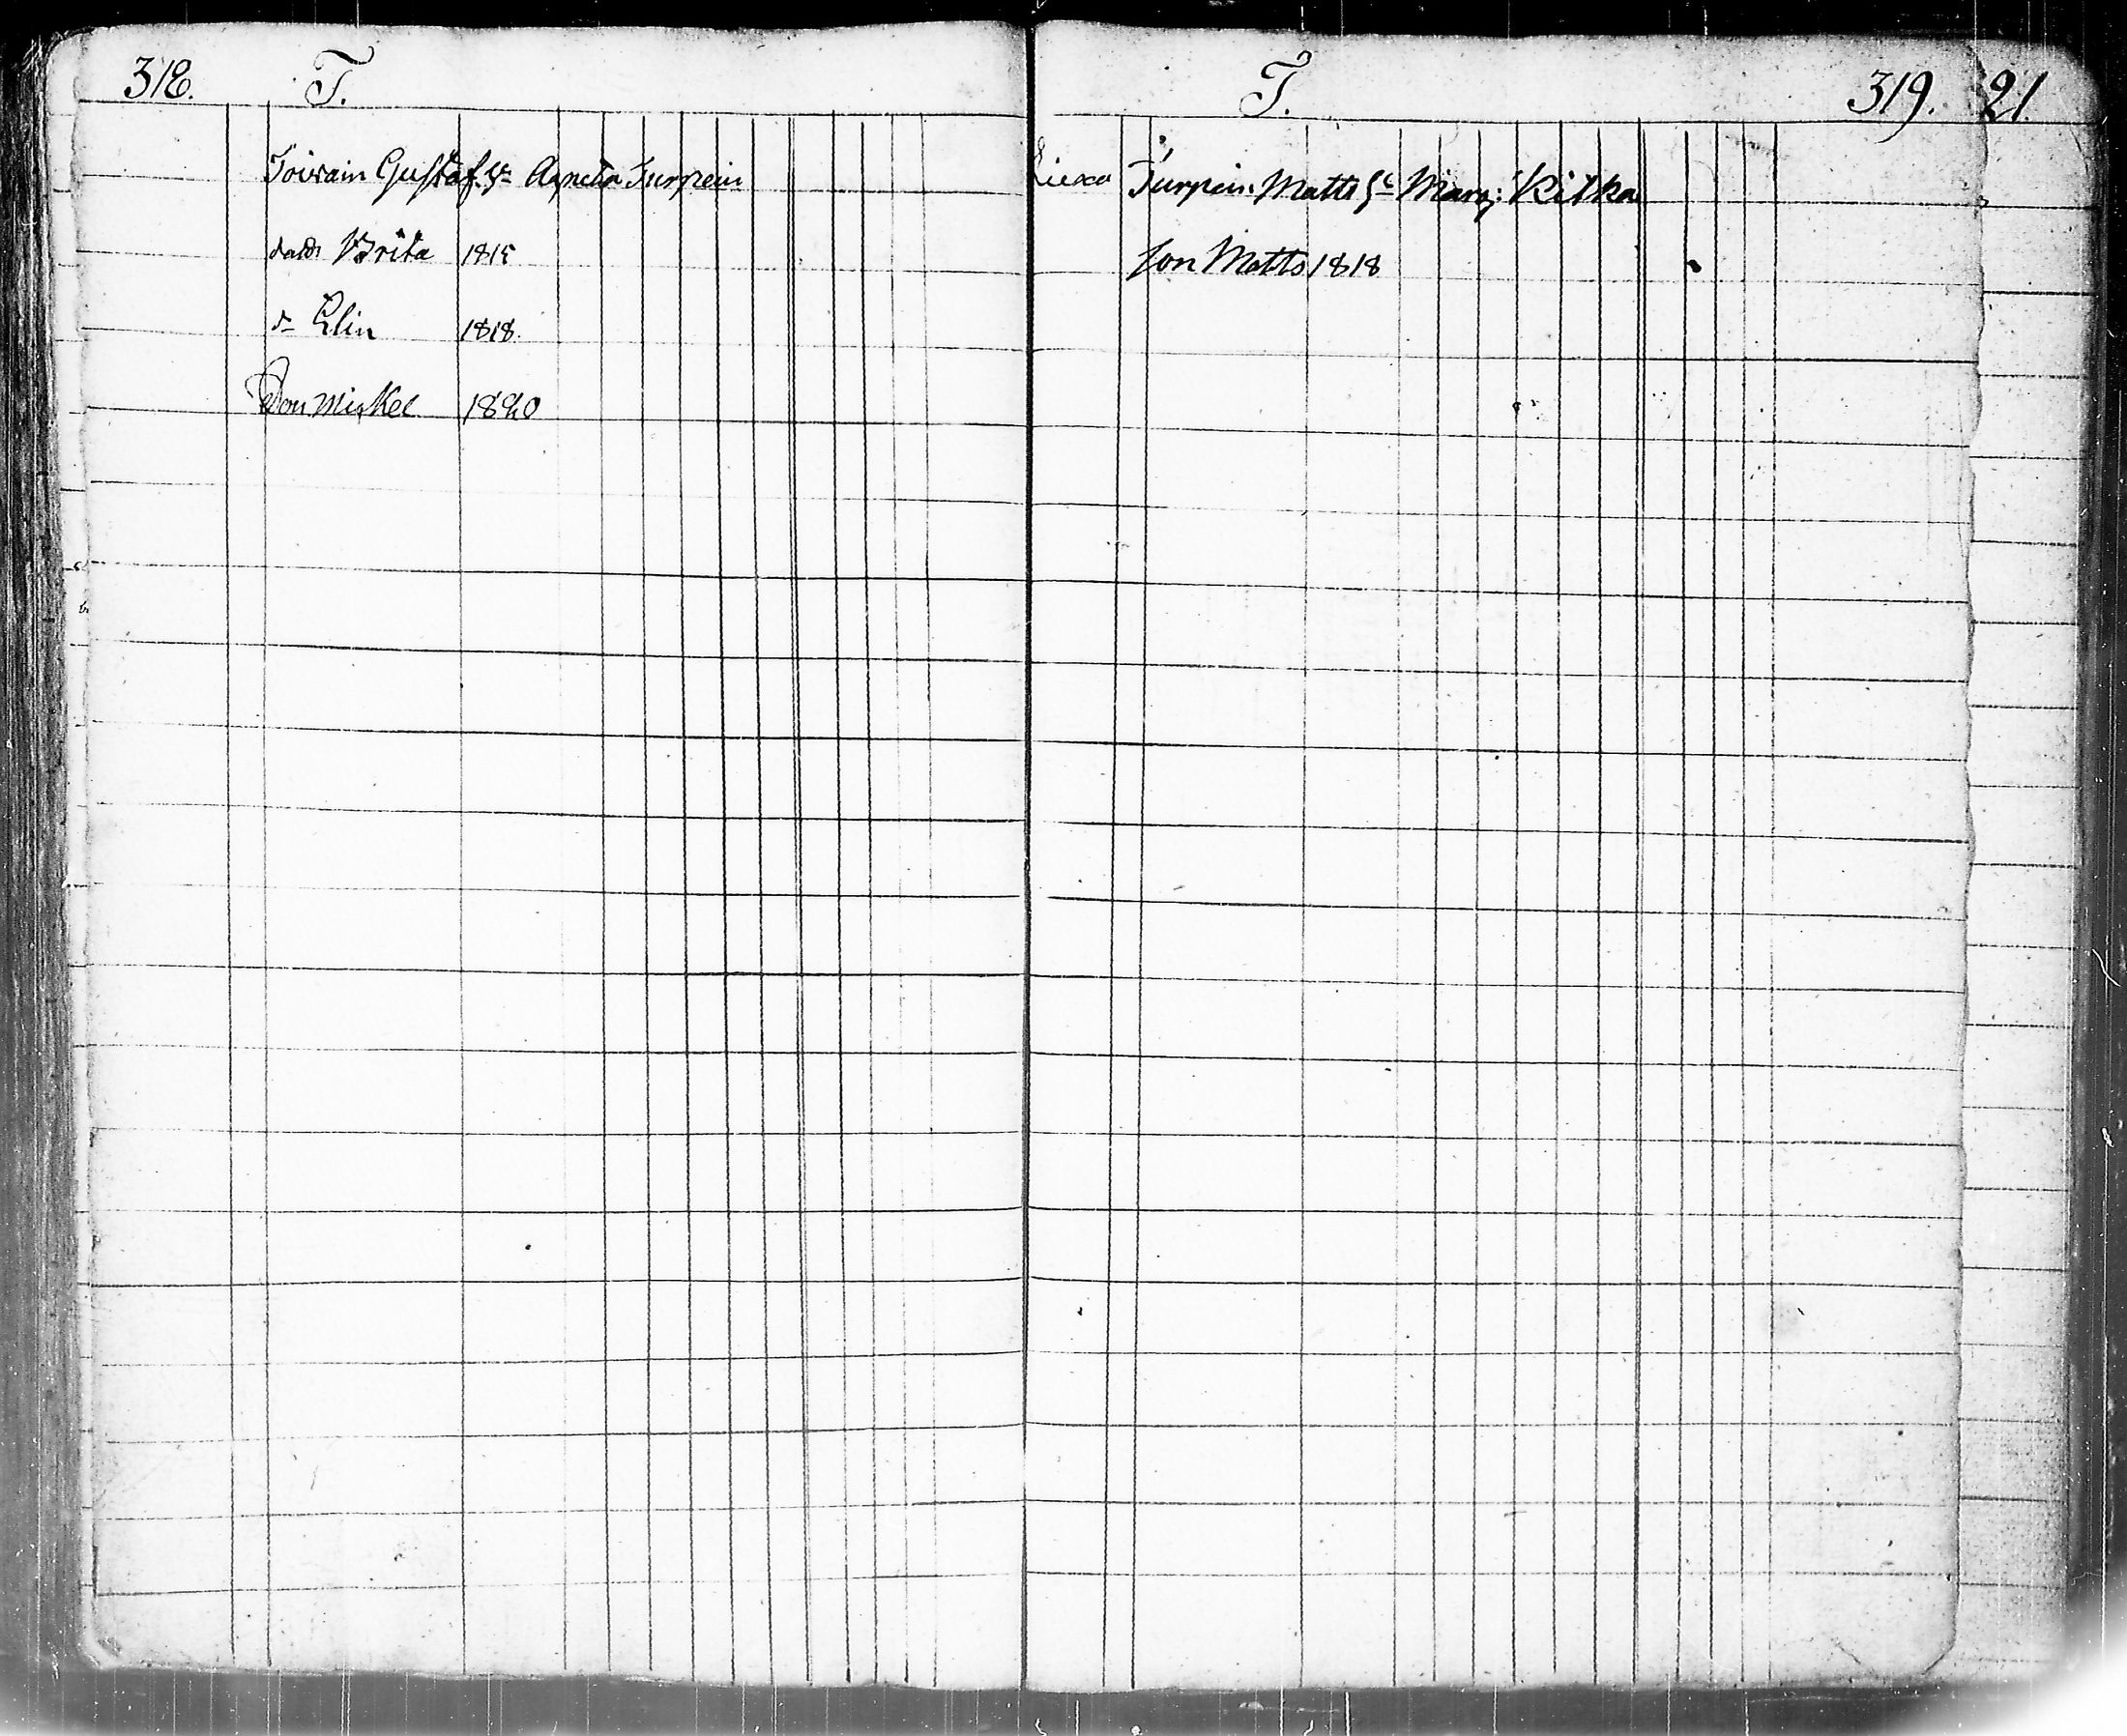 318. T.
Toivain Gustaf. hu Agneta Turpein
dottr Brita 1815
d– Elin 1818.
Son Mickel 1820
T. 319. 21.
Liexa Turpein. Matts hu Marg: Kitka
son Matts 1818